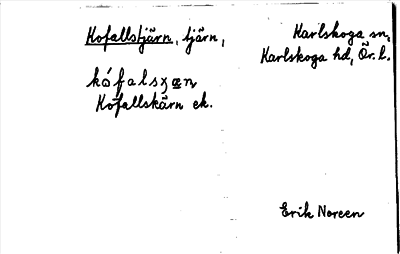 Kofallstjärn, tjärn,
Karlskoga sn,
Karlskoga hd, Ör. l.
kófalsʒæn
Kofallskärn ek.
Erik Noreen